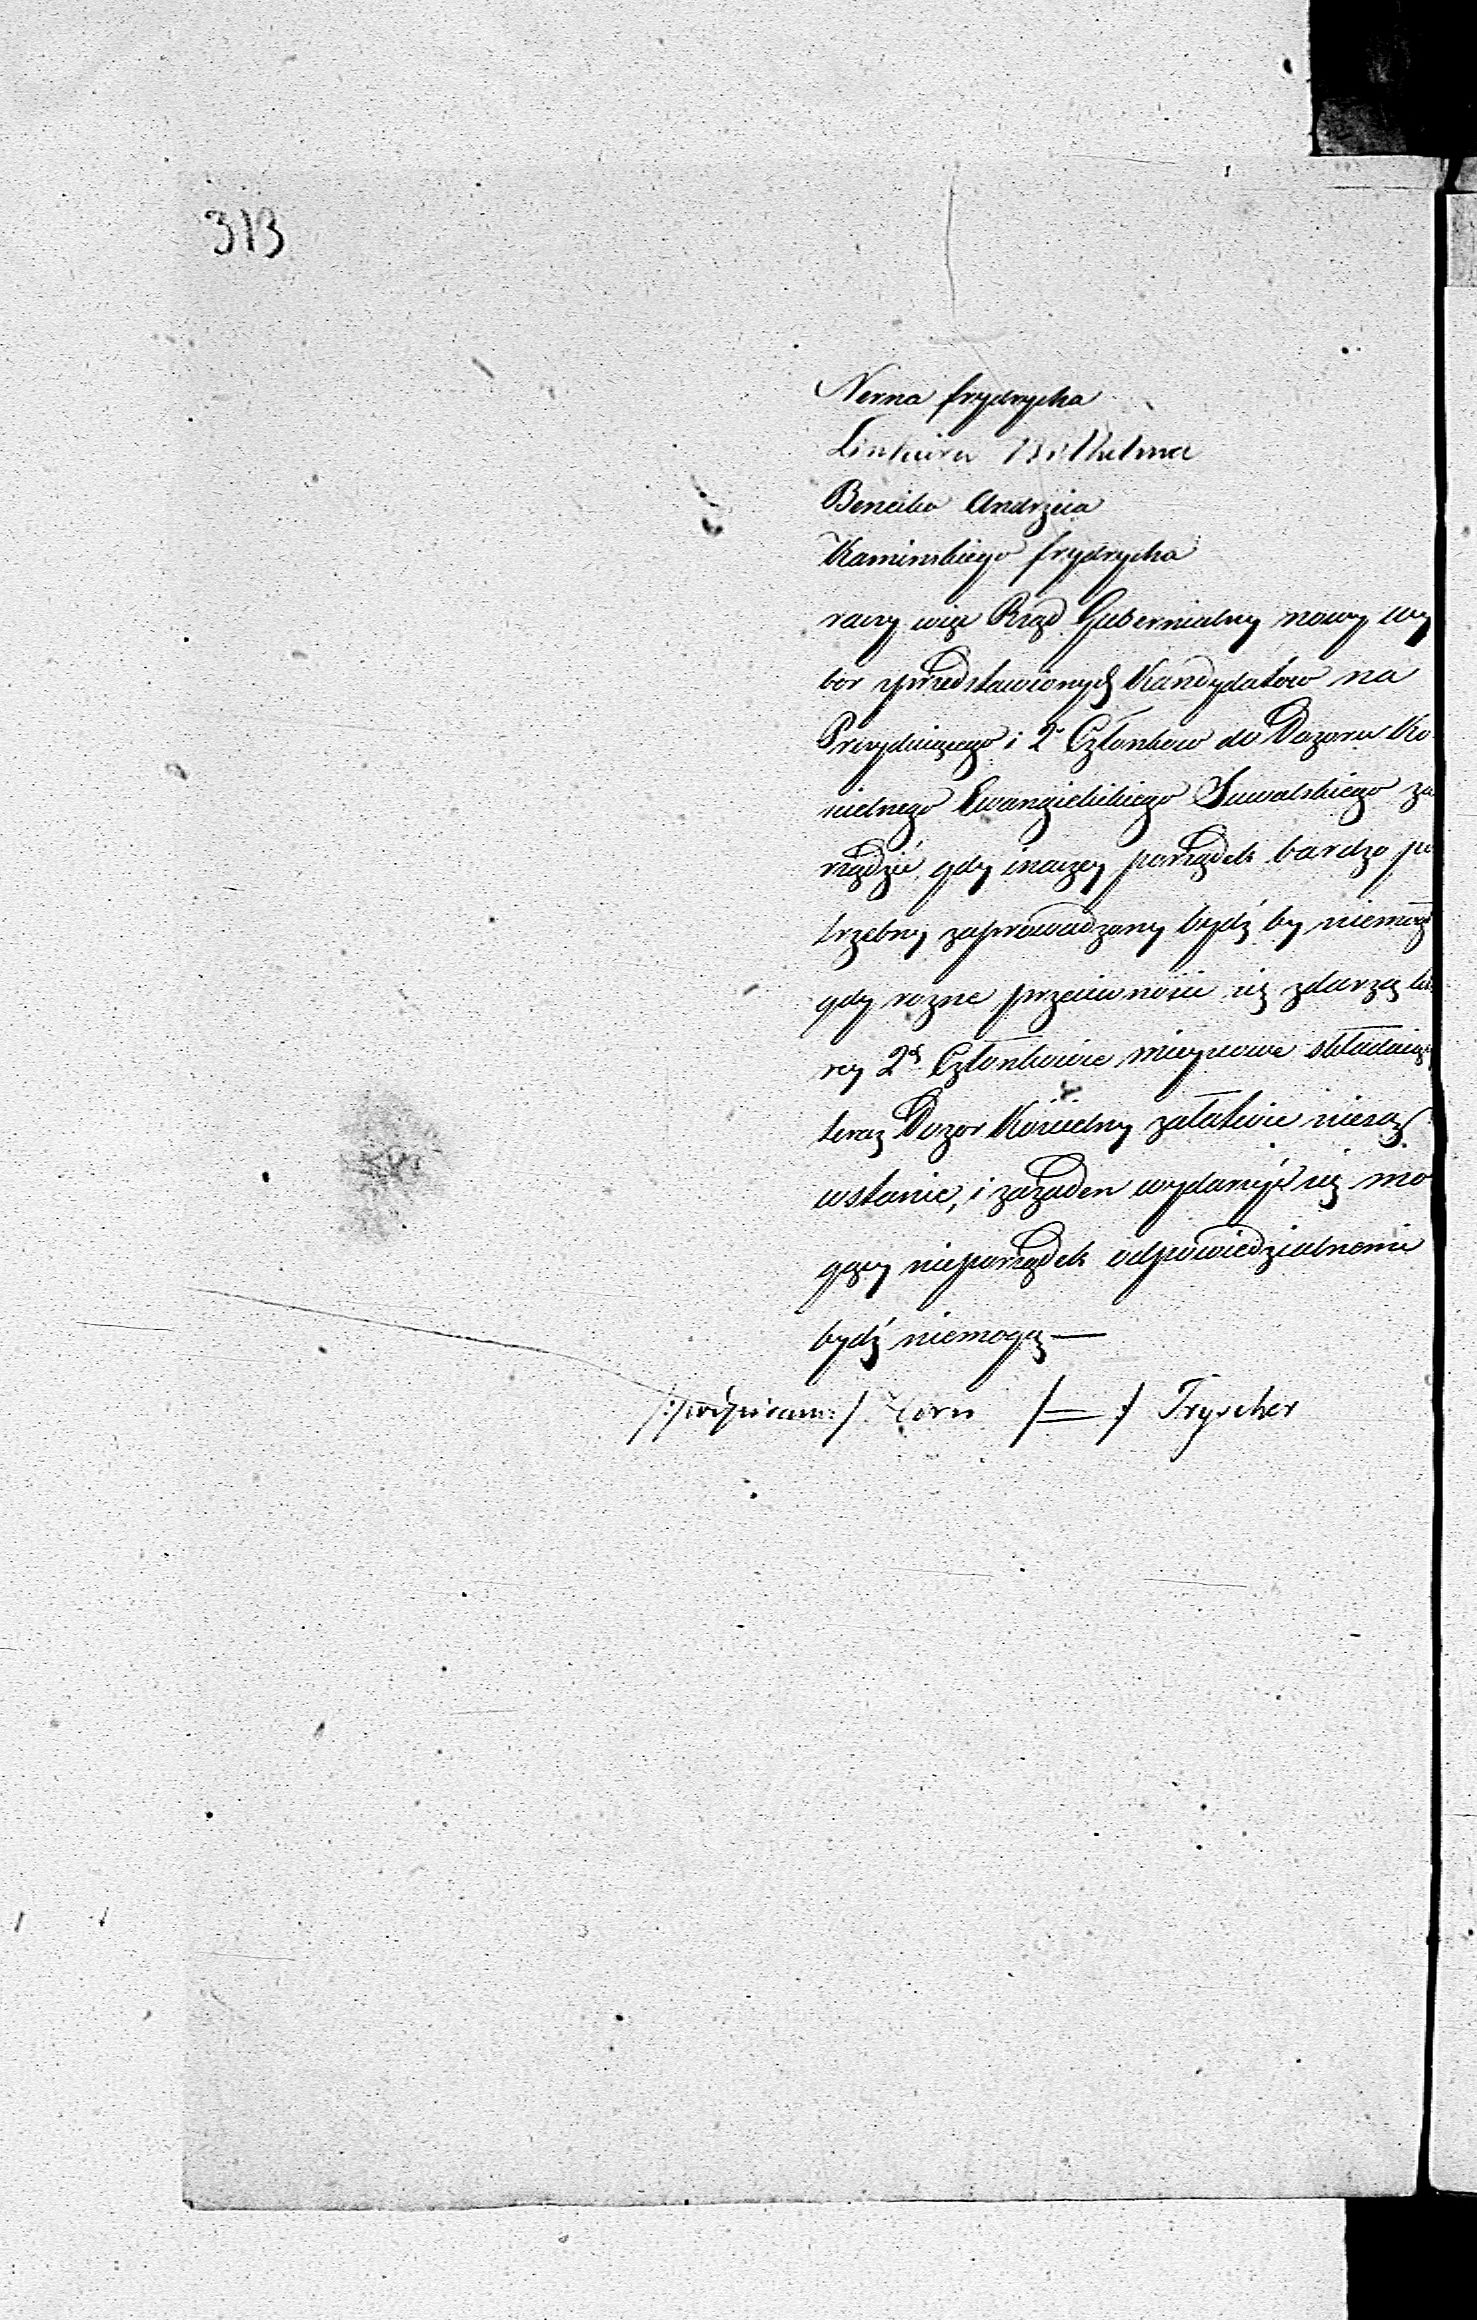 313
Nerna frydrycha
Wilhelma
Bencika Andrzeia
Kaminskiego frydrycha
raczy więc Rząd Gubernialny nowy wy
bor przedstawionych Kandydatow na
Prezyduiącego i 2ch Członkow do Dozoru Ko
scielnego Ewangielickiego Suwalskiego za
rządzić, gdy inaczey porządek bardzo po
trzebny zaprowadzony bydź by niemogł
gdy rozne przeciwnosci się zdarzą któ
rey 2ch Członkowie mieyscowe składaiący
teraz Dozor Kościelny załatwic niesą
wstanie, i zażaden wydarzyć się mo
gący nieporządek odpowiedzialnemi
bydź niemogą —
/:podpisani:/ Korn /=/ Fryscher